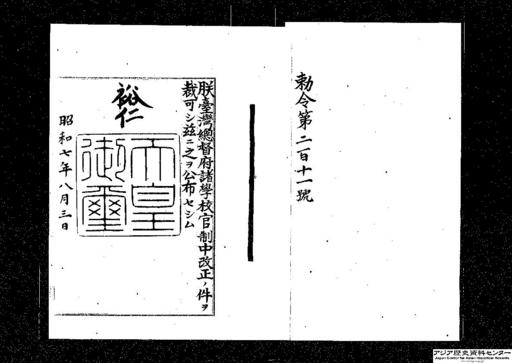 勅令第二百十一號
朕臺灣總督府諸學校官制中改正ノ件ヲ
裁可シ茲ニ之ヲ公布セシム
裕仁
天皇
御璽
昭和七年八月三日
アジア歴史資料センター
Japan Center for Asian Historical Records